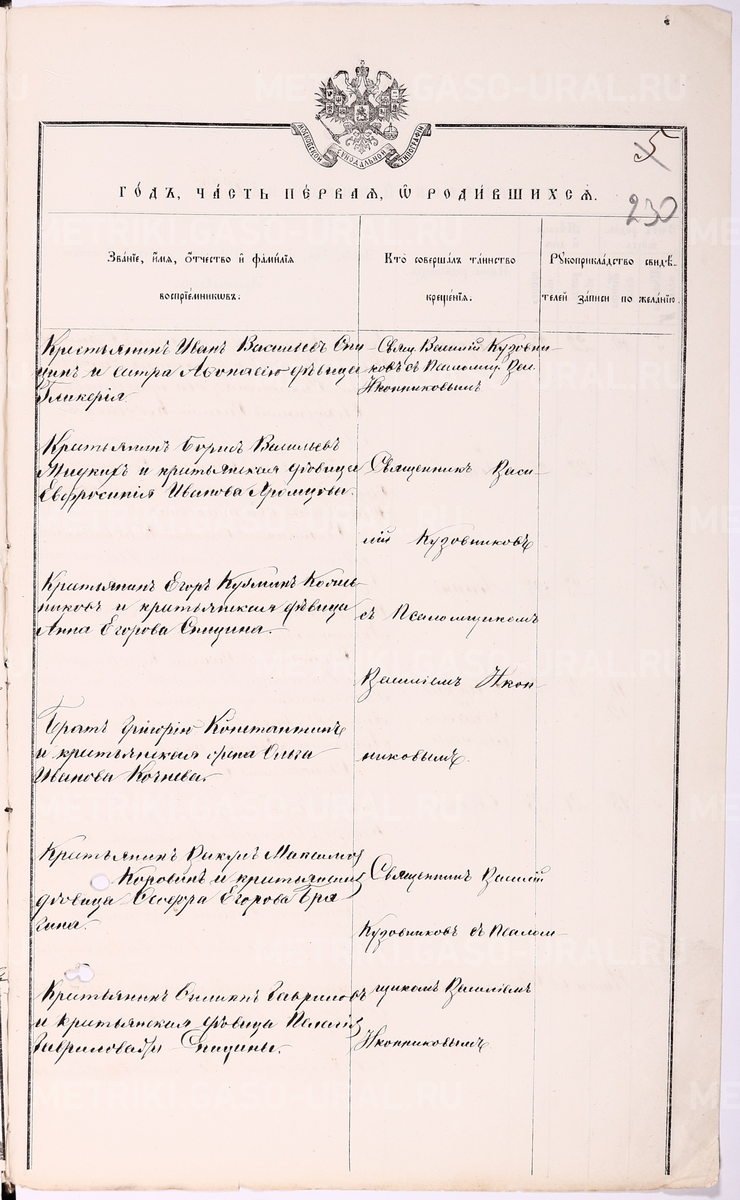 МОСКОВСКОЙ СѴНОДАЛЬНОЙ ТИПОГРАФІИ
5
230
ГО́ДЪ, ЧА́СТЬ ПЕ́РВАЯ, Ѿ РОДИ́ВШИХСѦ.
Зва́нїе, и҆́мѧ, ѻ҆́тчество и҆ фамі́лїѧ
воспрїе́мникѡвъ:
Кто̀ соверша́лъ та́инство
креще́нїѧ.
Рꙋкоприкла́дство свидѣ́-
телей за́писи по жела́нїю.
Крестьянинъ Иванъ Васильевъ Спи
цинъ и сестра Аѳонасію дѣвица
Гликерія
Свящ. Василій Кузовни-
ковъ съ Псаломщ. Вас.
Иконниковымъ
Крестьянинъ Борисъ Васильевъ
и крестьянская дѣвица
Евфросинія Иванова
Священникъ Васи-
лій Кузовниковъ
съ Псаломщикомъ
Василіемъ Икон
никовымъ.
Крестьянинъ Егоръ Кузминъ
никовъ и крестьянская дѣвица
Анна Егорова Спицина.
Братъ Григорію Константинъ
и крестьянская Ольга
Иванова Кочнева.
Крестьянинъ Максимов
Коровинъ и крестьянская
дѣвица Ѳеодора Егорова Бря
гина.
Священникъ Василій
Кузовниковъ съ Псалом
щикомъ Василіемъ
Иконниковымъ.
Крестьянинъ Гавриловъ
и крестьянская дѣвица Пелагія
Гаврилова Спицины.
METRIKI.GASO-URAL.RU